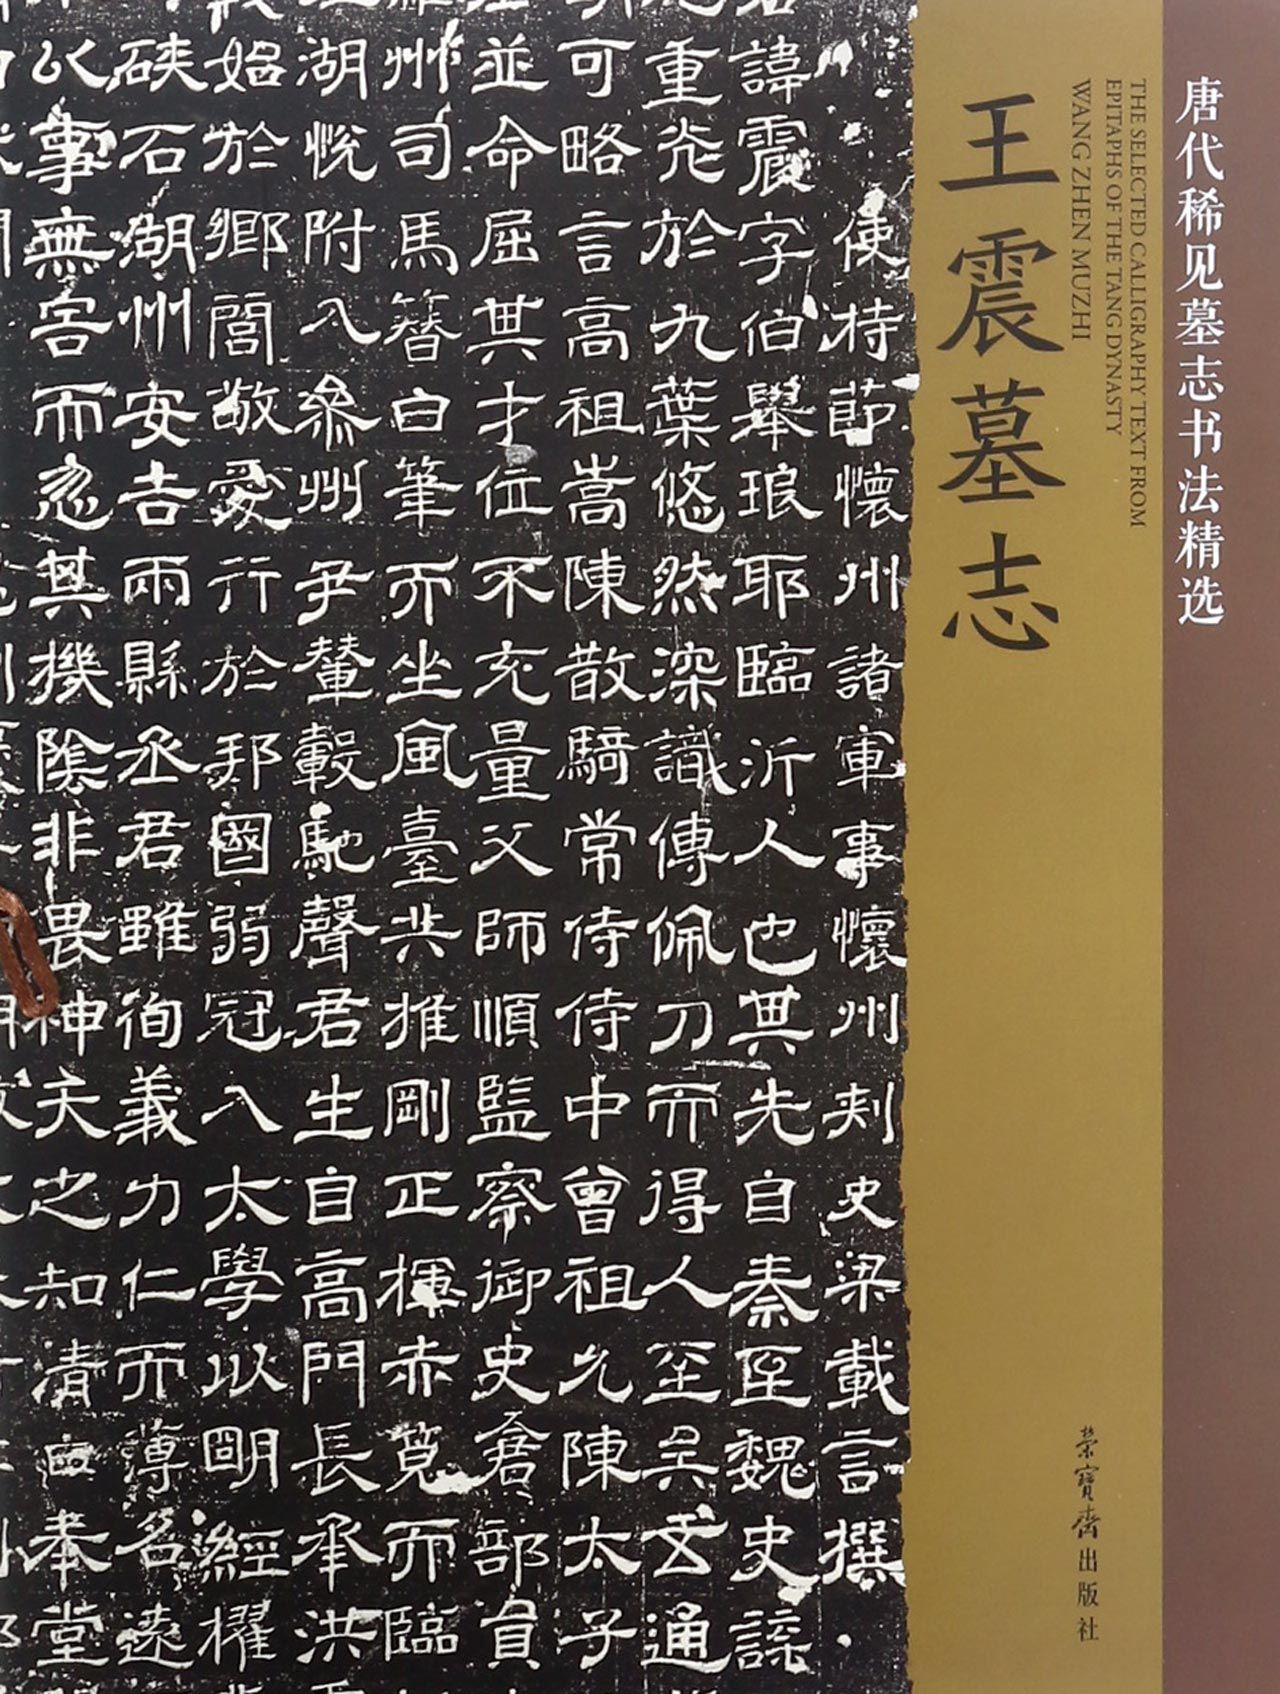 唐代稀见墓志书法精选
THE SELECTED CALLIGRAPHY TEXT FROM
EPITAPHS OF THE TANG DYNASTY
WANG ZHEN MUZHI
王震墓志
榮寶齋出版社
使持節懷州諸軍事懷州刺史梁載言撰
諱震字伯舉琅耶臨沂人也其先自秦至魏史諜
重光於九葉悠然深識傳佩刀而得人至矣通
可略言高祖嵩陳散騎常侍侍中曾祖允陳太子
並命屈其才位不充量父師順監察御史倉部員
州司馬簪白筆而坐風臺共推剛正揮赤筧而臨
湖悅附入參州尹輦轂馳聲君生自高門長承洪
始於鄉閭敬愛行於邦國弱冠入太學以明經擢
硤石湖州安吉兩縣丞君雖徇義力仁而名遠
以事無害而忌其機陰非畏神天之知清白奉堂